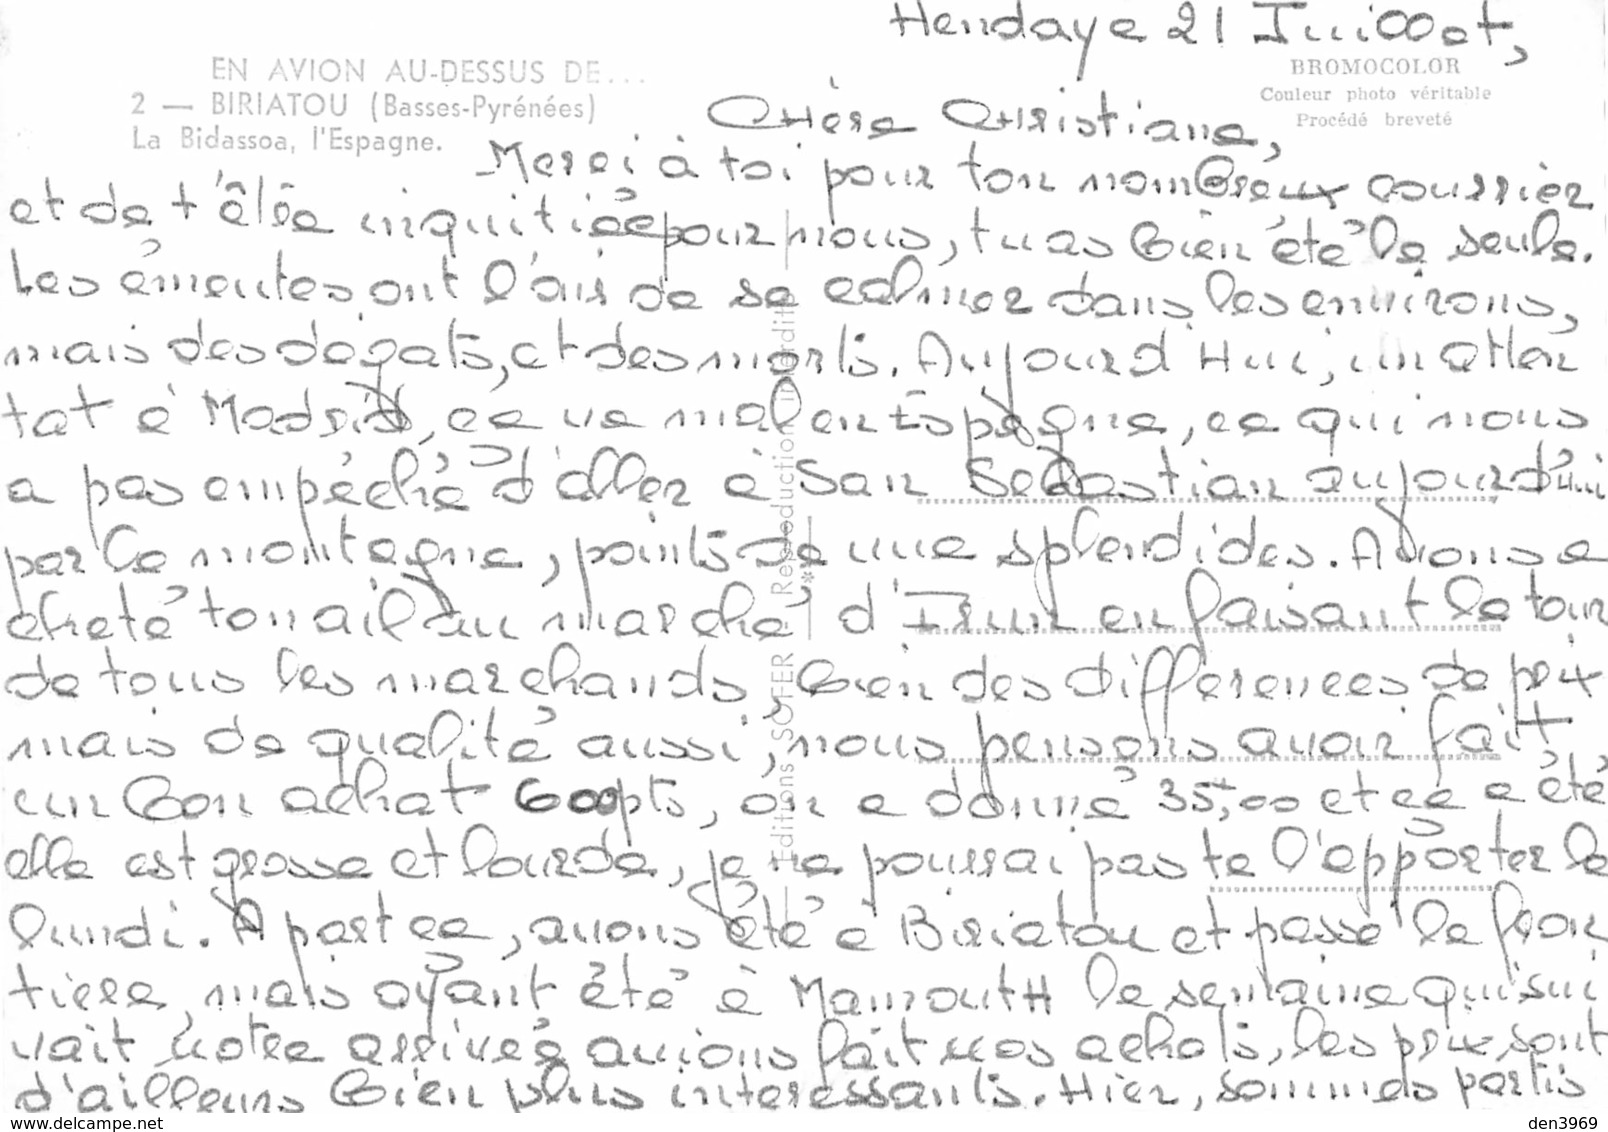 Hendaye 21 Juillet,
EN AVION AU-DESSUS DE...
2 — BIRIATOU (Basses-Pyrénées)
La Bidassoa, l'Espagne.
BROMOCOLOR
Couleur photo véritable
Procédé breveté
Chère Christiane,
Merci à toi pour ton nombreux courrier
et de t'être inquitiée pour nous, tu as bien été la seule.
Les émeutes ont l'air de se calmer dans les environs,
mais des dégats, et des morts. Aujourd'Hui, un atten
tat à Madrid, ça va mal en Espagne, ce qui nous
a pas empéché d'aller à San Sebastian aujourd'hui
par la montagne, points de vue splendides. Avons a
cheté ton ail au marché d'Irun en faisant le tour
de tous les marchands, bien des différences de prix
mais de qualité aussi, nous pensons avoir fait
un bon achat 600pts, on a donné 35,00 et ça a été
elle est grosse et lourde, je ne pourrai pas te l'apporter le
lundi. A part ça, avons été à Biriatou et passé la fron
tière, mais ayant été à MamoutH la semaine qui sui
vait notre arrivée avions fait nos achats, les prix sont
d'ailleurs bien plus interessants. Hier, sommes partis
Editions SOFER - Reproduction interdite
www.delcampe.net
den3969